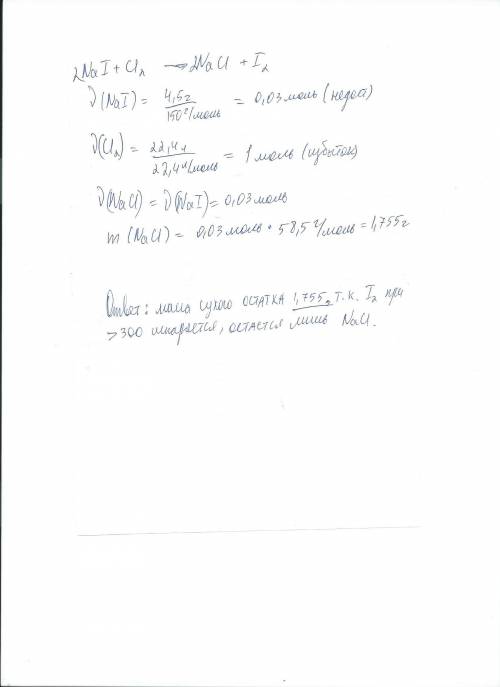 2NaI + Cl₂ → 2NaCl + I₂
ν(NaI) = 4,5г / 150г/моль = 0,03 моль (недост)
ν(Cl₂) = 22,4л / 22,4л/моль = 1 моль (избыток)
ν(NaCl) = ν(NaI) = 0,03 моль
m(NaCl) = 0,03 моль • 58,5 г/моль = 1,755г
Ответ: масса сухого остатка 1,755г т.к. I₂ при
>300 испаряется, остается лишь NaCl.